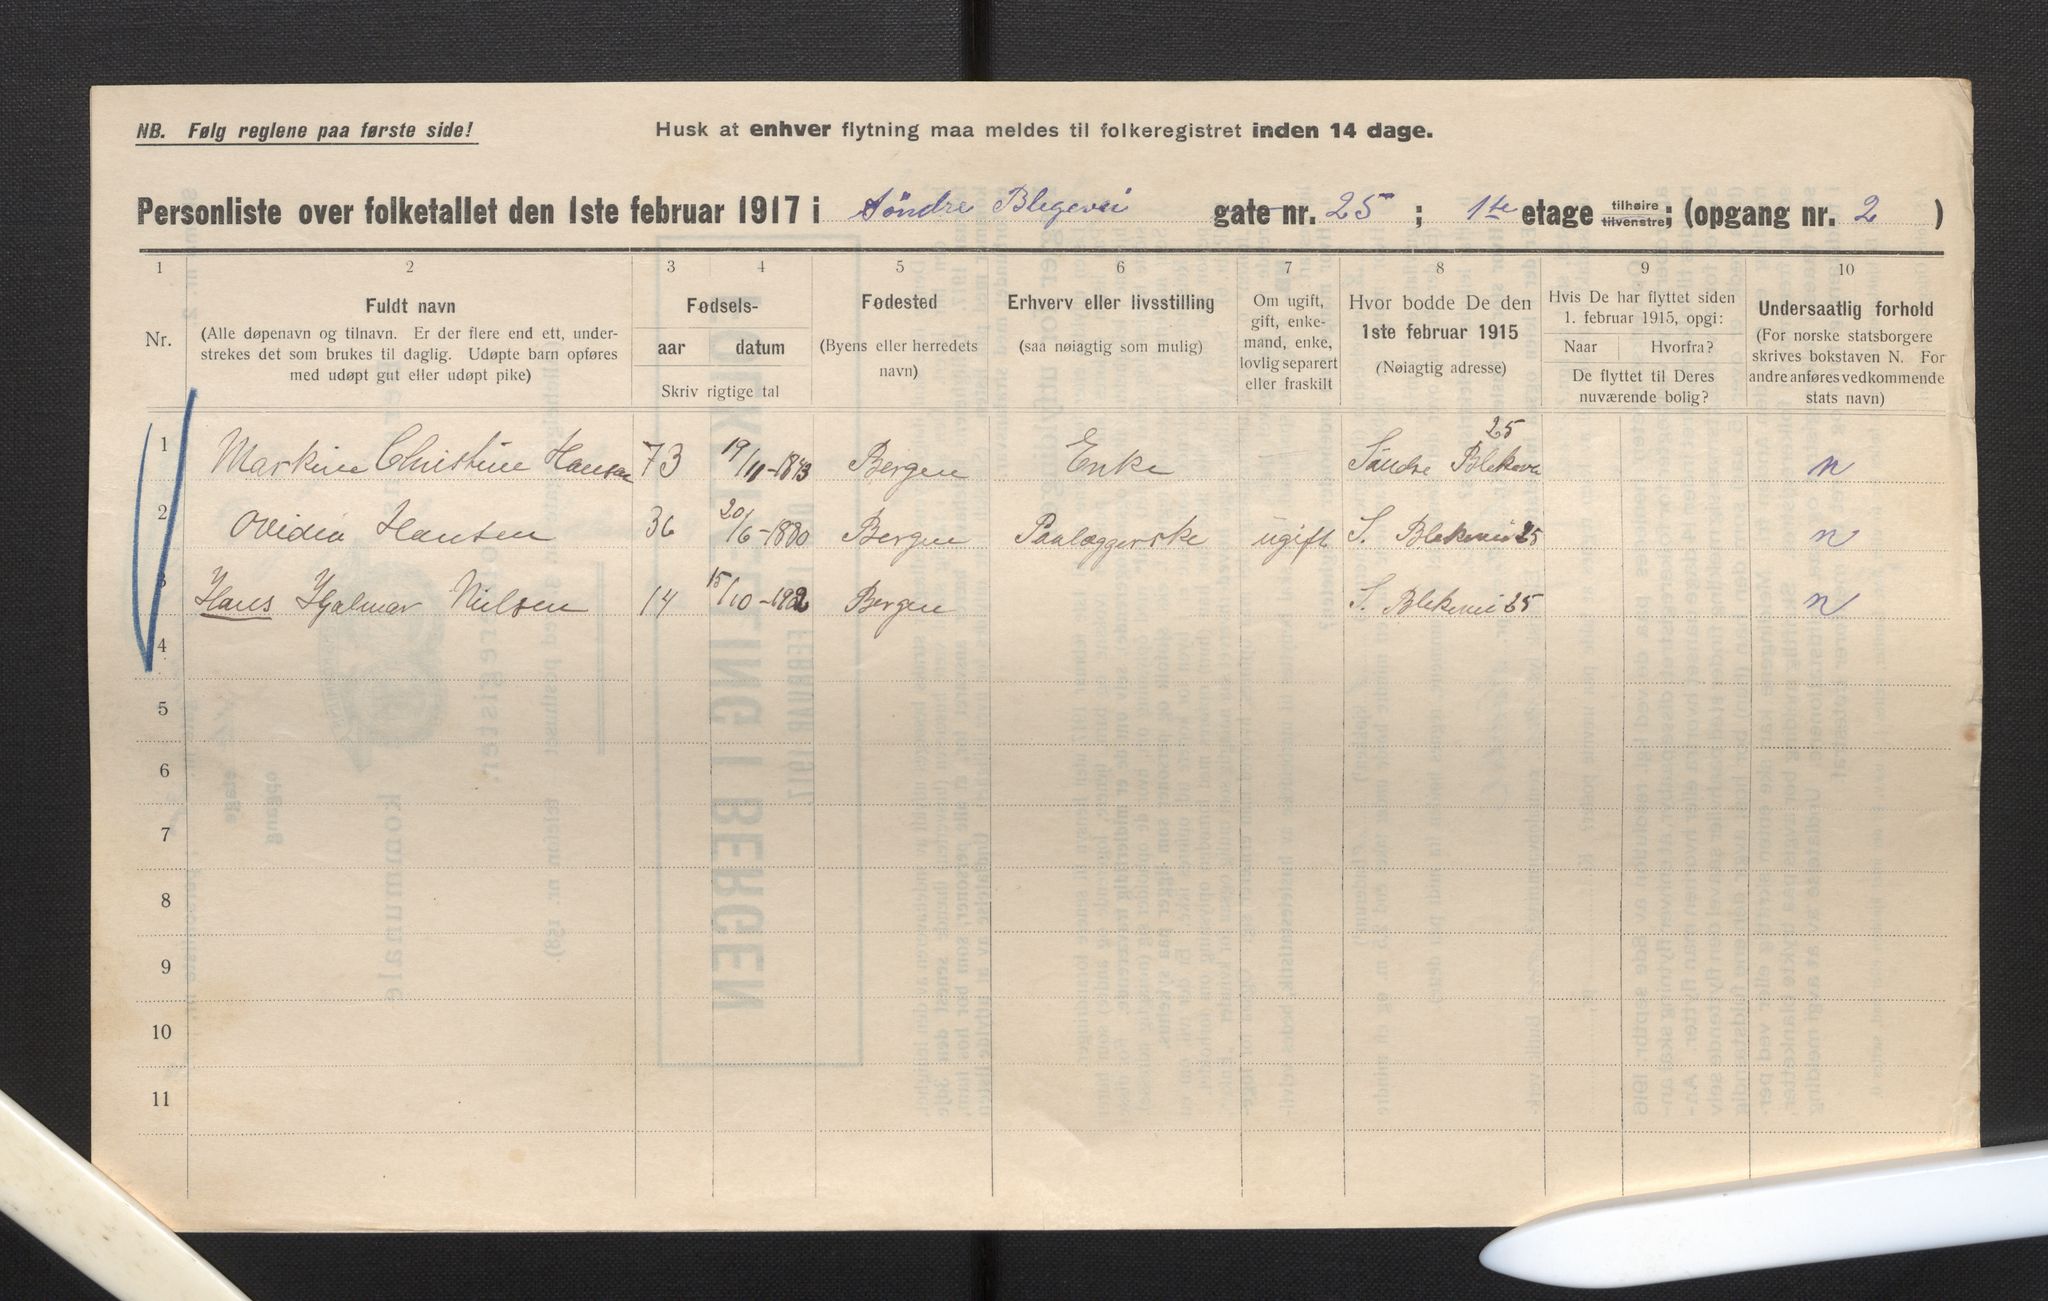 NB. Følg reglene paa første side!
Husk at enhver flytning maa meldes til folkeregistret inden 14 dage.
Personliste over folketallet den 1ste februar 1917 i Søndre Blegevei gate nr. 25 ; 1ste etage tilhøire tilvenstre ; (opgang nr. 2 )
1 2 3 4 5 6 7 8 9 10
Nr.
Fuldt navn
(Alle døpenavn og tilnavn. Er der flere end ett, under-
strekes det som brukes til daglig. Udøpte barn opføres
med udøpt gut eller udøpt pike)
Fødsels-
aar datum
Skriv rigtige tal
Fødested
(Byens eller herredets
navn)
Erhverv eller livsstilling
(saa nøiagtig som mulig)
Om ugift,
gift, enke-
mand, enke,
lovlig separert
eller fraskilt
Hvor bodde De den
1ste februar 1915
(Nøiagtig adresse)
Hvis De har flyttet siden
1. februar 1915, opgi:
Naar Hvorfra?
De flyttet til Deres
nuværende bolig?
Undersaatlig forhold
(For norske statsborgere
skrives bokstaven N. For
andre anføres vedkommende
stats navn)
1 Martine Christine Hansen 73 19/11-1843 Bergen Enke Søndre Blekevei 25 n
2 Ovidia Hansen 36 20/6-1880 Bergen Paalæggerske ugift S. Blekevei 25 n
3 Hans Hjalmar Nielsen 14 15/10-1902 Bergen S. Blekevei 25 n
4
5
6
7
8
9
10
11